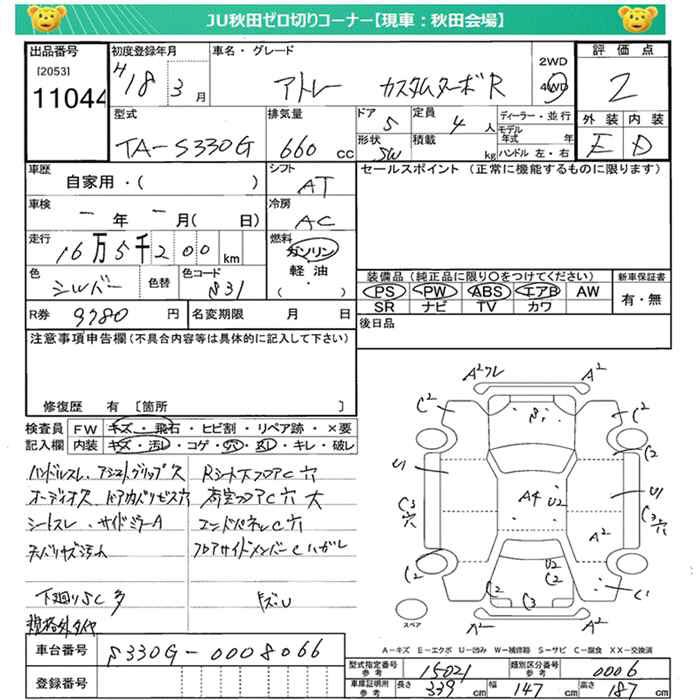 JU秋田ゼロ切りコーナー【現車：秋田会場】
出品番号
[2053]
11044
初度登録年月
H18 3月
車名・グレード
アトレー カスタムターボR
2WD
4WD
評価点
2
型式
TA-S330G
排気量
660 cc
ドア
5
定員
4人
形状
SW
積載
kg
ディーラー・並行
モデル年式 年
ハンドル 左・右
外装 内装
E D
車歴
自家用・( )
シフト
AT
セールスポイント (正常に機能するものに限ります)
車検
ー年 ー月( 日)
冷房
AC
走行
16万5千200km
燃料
ガソリン
軽油
( ・ )
色
シルバー
色替
色コード
S31
装備品(純正品に限り○をつけてください)
PS PW ABS エアB AW
SR ナビ TV カワ
新車保証書
有・無
R券 9780円
名変期限 月 日
後日品
注意事項申告欄(不具合内容等は具体的に記入して下さい)
修復歴 有 〔箇所 〕
検査員記入欄
FW キズ・飛石・ヒビ割・リペア跡・×要
内装 キズ・汚レ・コゲ・穴・スレ・キレ・破レ
ハンドルスレ、アシストグリップ欠
オーディオ欠
シートスレ・サイドミラーA
下廻りSC多
規格外タイヤ
Rシート下フロアC穴
荷室フロアC穴大
エンドパネルC穴
フロアサイドメンバーCハガレ
キズU
A2ワレ A2
C2 C2
U1 A4 U2 U1
C3穴 C3穴
A2
C2 C2 C3 U2 C2 C
A2
スペア
A-キズ E-エクボ U-凹み W-補修跡 S-サビ C-腐食 XX-交換済
車台番号
S330G-0008066
登録番号
型式指定番号 参考
15021
類別区分番号 参考
0006
車庫証明用 参考
長さ 339cm 幅 147cm 高さ 187cm